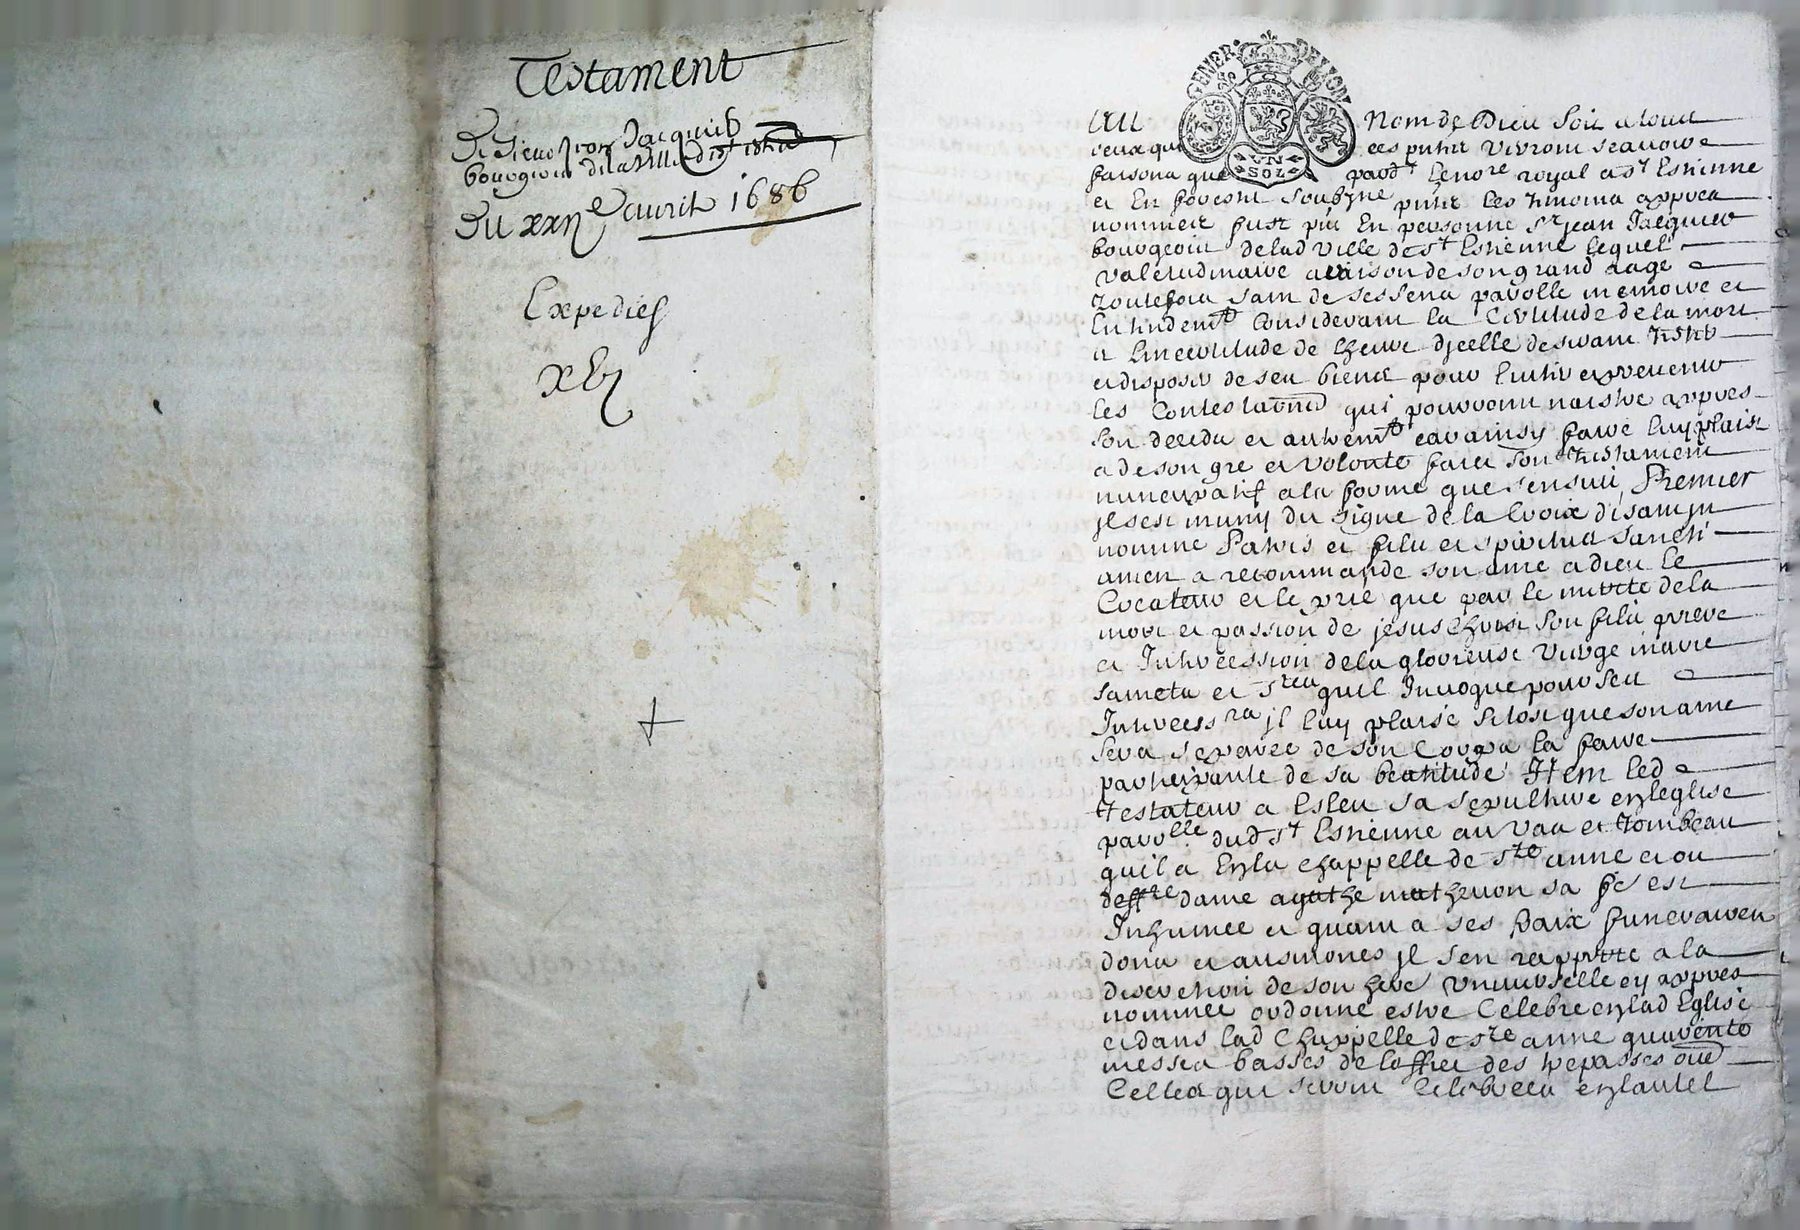 Testament
De sieur Jean Jacquier
bourgeois de la ville de st Estienne
Du xxij^e avril 1686
Expedies
GENER · DE LYON
UN
SOL
Au Nom de Dieu soit a tous
ceux que ces pntes verront scavoir
faisons que pard^t le no^re royal a s^t Estienne
et En forests soubzne pnts les tmoins appres
nommes fust pnt En personne s^r jean Jacquier
bourgeois de lad ville de s^t Estienne lequel
valetudinaire a raison de son grand aage
toutesfois sain de ses sens parolle memoire et
Entendem^t Considerant la Certitude de la mort
et Lincertitude de lheure djcelle desirant tester
et disposer de ses biens pour Eviter et prevenir
les Contestaons qui pourroint naistre appres
son decedz et autrem^t car ainsy faire luy plaist
a de son gre et volonte faict son testament
nuncupatif a la forme que sensuit, Premier
jl sest muny du signe de la Croix disant jn
nomine Patris et filii et spiritus sancti
amen a recommande son ame a dieu le
Createur et le prie que par le merite de la
mort et passion de jesus Christ son fils
et Intercession de la glorieuse vierge marie
saincts et s^tes quil Invoque pour ses
Intercess^rs jl luy plaise sitost que son ame
sera separee de son Corps la faire
participante de sa beatitude Item led
testateur a Esleu sa sepulture en leglise
paro^lle dud s^t Estienne au vas et tombeau
quil a En la chappelle de s^te anne et ou
deff^te dame agathe mathevon sa fe est
Inhumee et quant a ses fraix funeraires
dons et ausmones jl sen rapporte a la
discretion de son here universelle cy appres
nommee ordonne estre Celebre en lad Eglise
et dans lad Chappelle de s^te anne quarente
messes basses de loffice des trepasses oue
Celles qui seront Celebrees en lautel